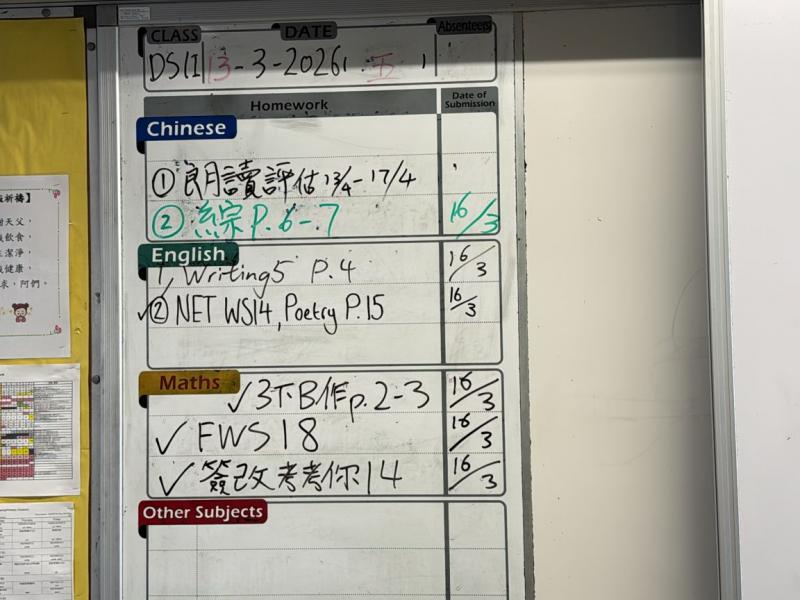 CLASS DATE Absentee(s)
13-3-2026 五
Homework Date of Submission
Chinese
① 朗讀評估 13/4-17/4
② 綜 P.6-7 16/3
English
1 Writing5 P.4 16/3
✓② NET WS14, Poetry P.15 16/3
Maths
✓3下B作p.2-3 16/3
✓ FWS18 16/3
✓ 簽改考考你14 16/3
Other Subjects
祈禱】
天父，
飲食，
潔淨，
健康，
求，阿們。